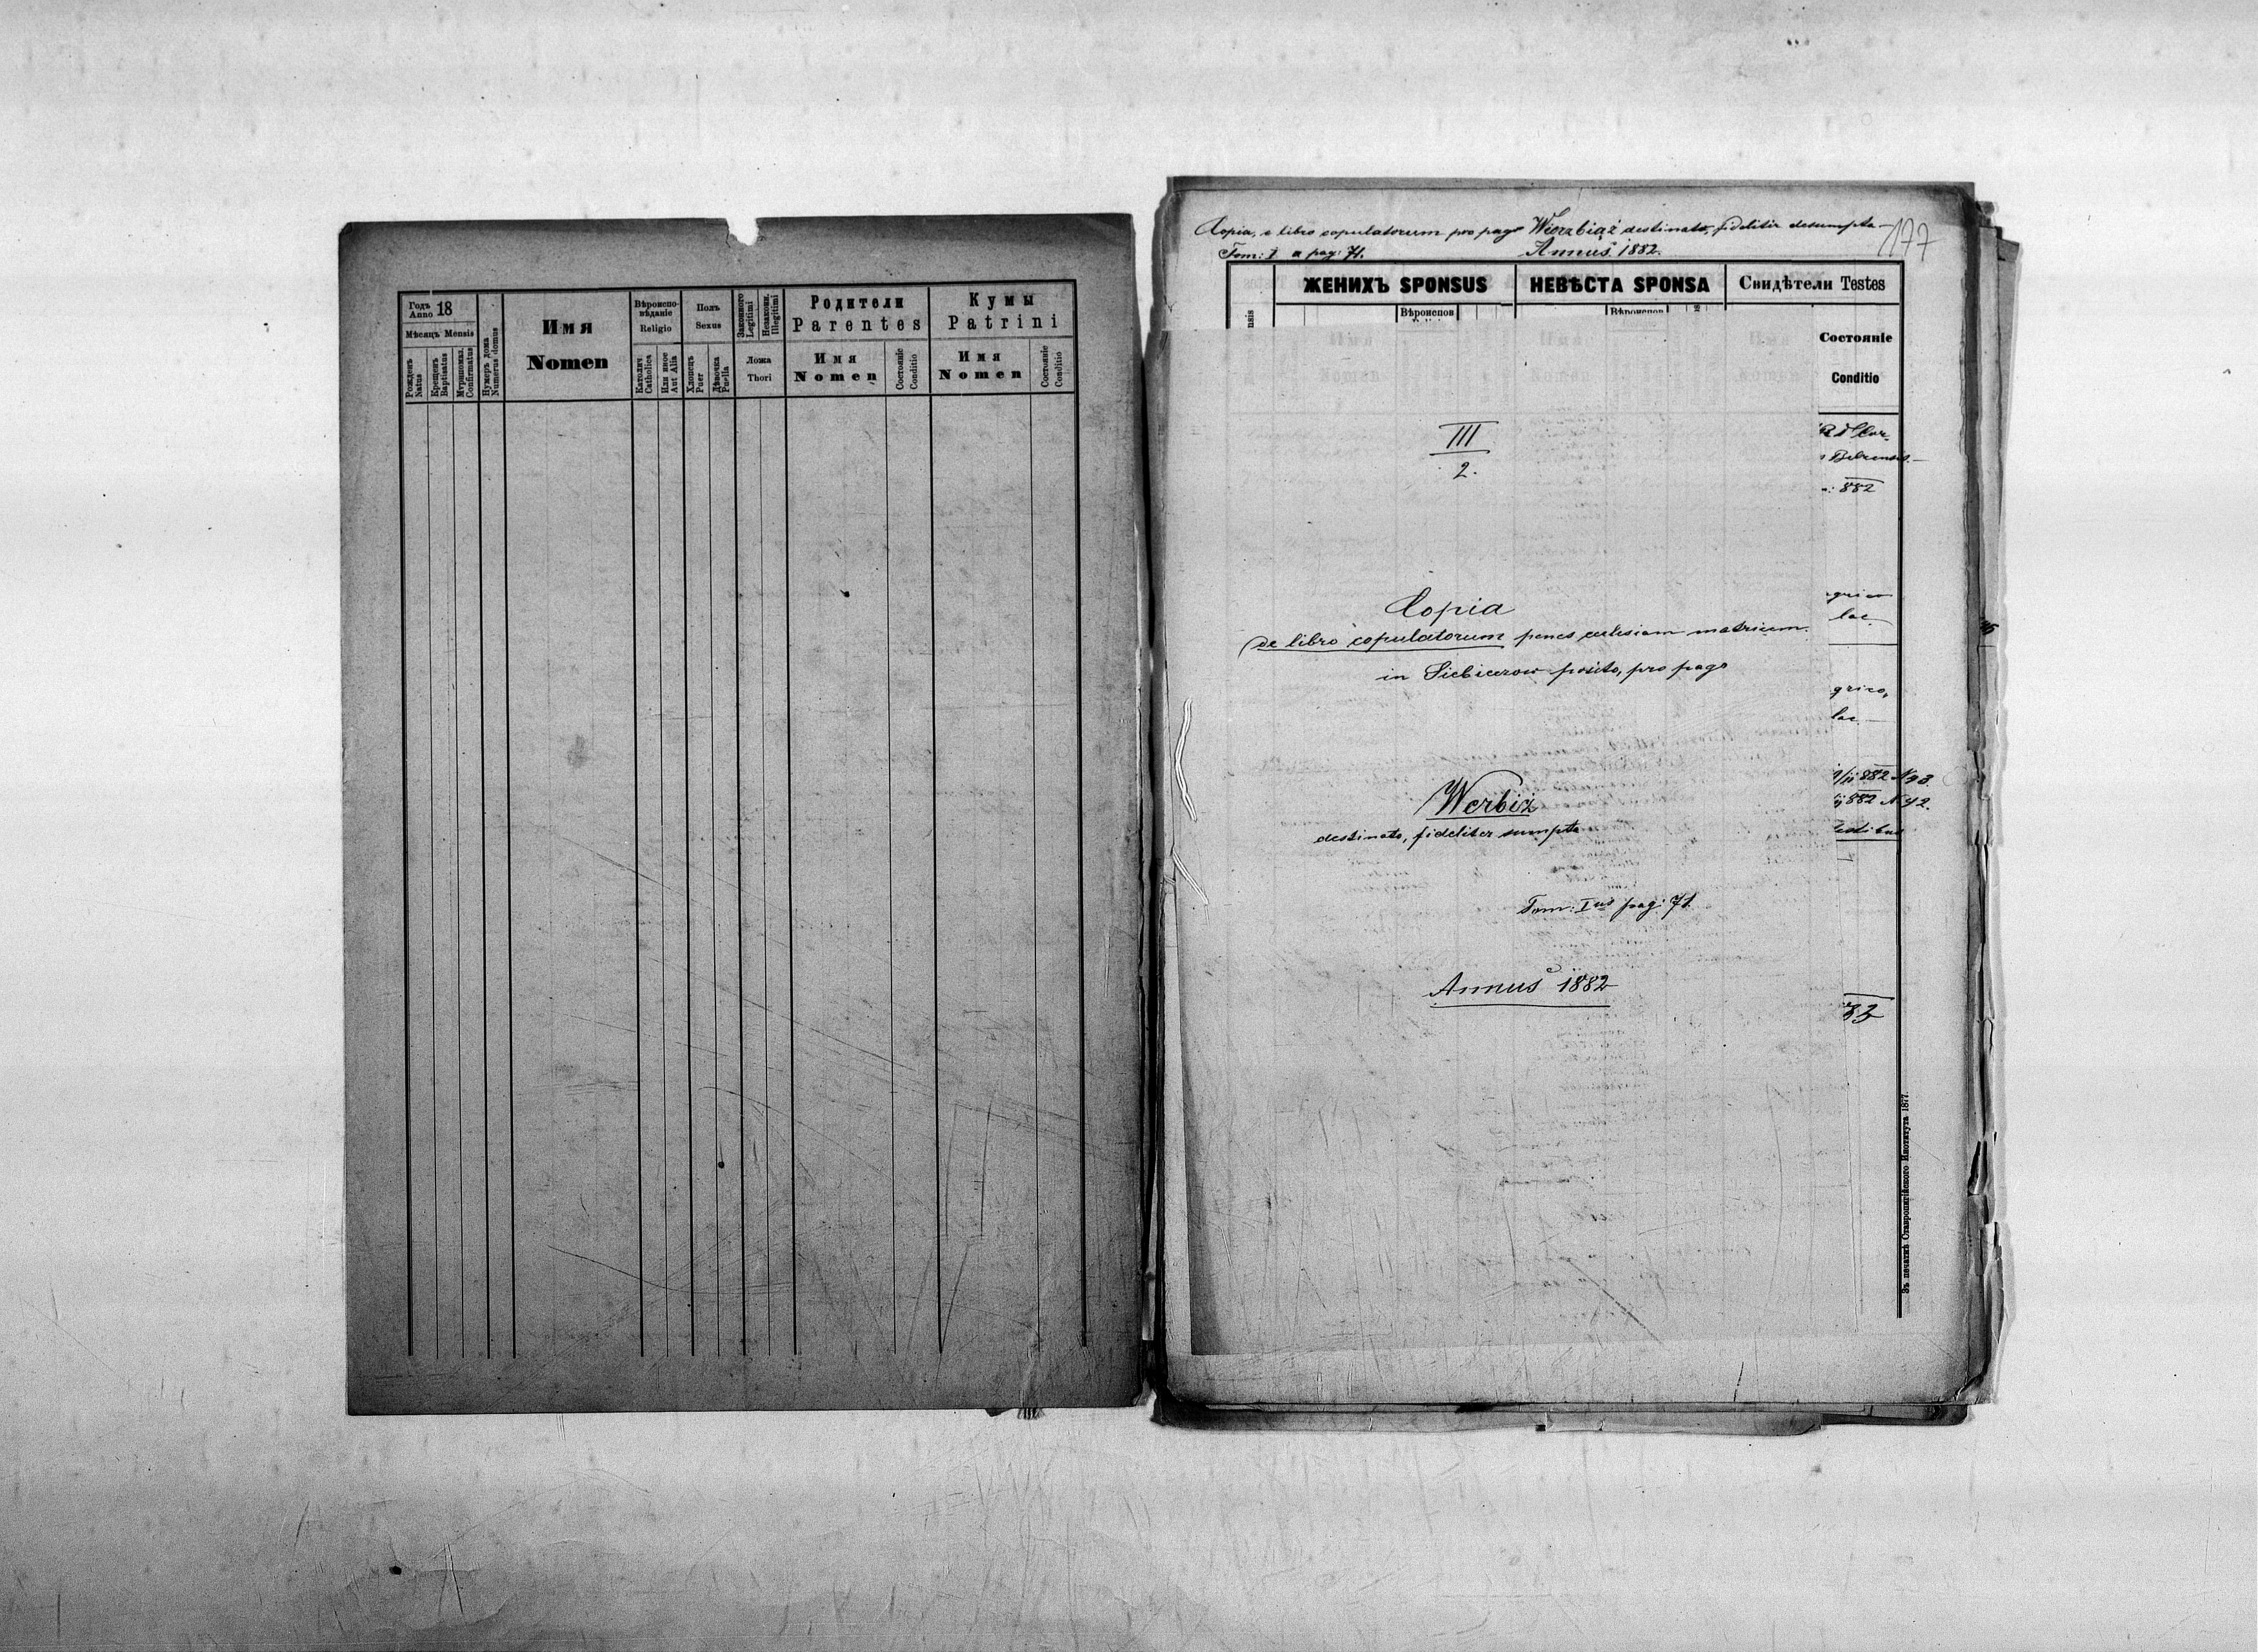 Годъ Anno 18
Мѣсяцъ Mensis
Рожденъ Natus
Крещенъ Baptisatus
Мѵропомаз. Confirmatus
Нумеръ дома Numerus domus
Имя
Nomen
Вѣроиспо-
вѣданіе
Religio
Католич Catholica
Или иное Aut Alia
Полъ
Sexus
Хлопецъ Puer
Дѣвочка Puella
Законного Legitimi
Незаконн. Illegitimi
Ложа
Thori
Родители
Parentes
Имя
Nomen
Состояніе Conditio
Кумы
Patrini
Имя
Nomen
Состояніе Conditio
Copia, e libro copulatorum pro pago Wierzbiąż destinato, fideliter desumpta
177
Tom: I a pag: 71.
Annus 1882.
ЖЕНИХЪ SPONSUS
НЕВѢСТА SPONSA
Свидѣтели Testes
nsis
Вѣроиспов
Вѣроиспов
Состояніе
Conditio
III
2.
: 882
Copia
de libro copulatorum penes ecclesiam matricem
in Siebieczow posito, pro pago
grico
lae
grico,
lae
Werbiż
destinato, fideliter sumpta
882 N 93.
882 N 92.
Tom: I pag: 71.
Annus 1882
Въ печатнѣ Ставропигійского Института 1877.